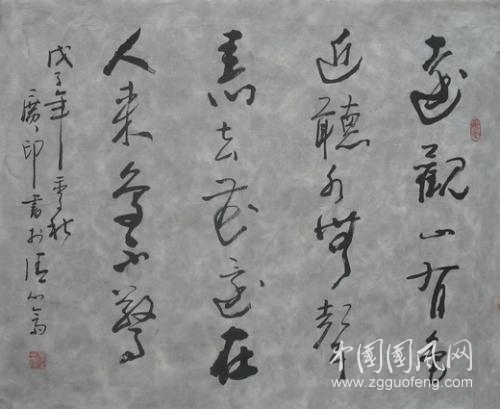 遠觀山有色
近聽水無聲
春去花還在
人來鳥不驚
戊子年季秋
廣印書於清心斋
中國國风网
www.zgguofeng.com